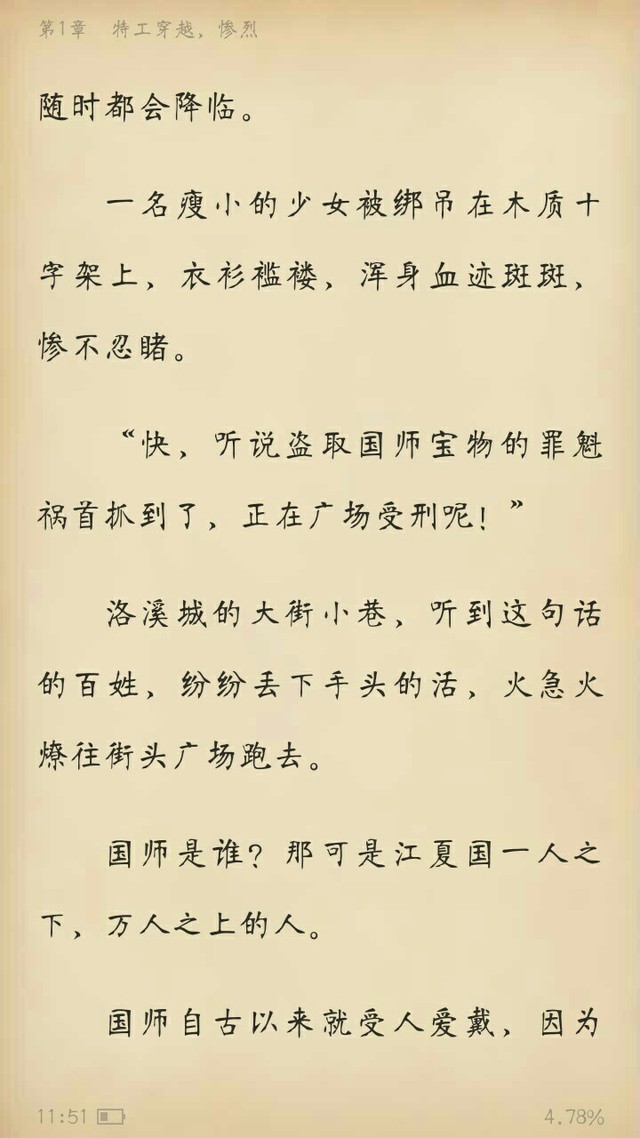 第1章 特工穿越，惨烈
随时都会降临。
一名瘦小的少女被绑吊在木质十
字架上，衣衫褴褛，浑身血迹斑斑，
惨不忍睹。
“快，听说盗取国师宝物的罪魁
祸首抓到了，正在广场受刑呢！”
洛溪城的大街小巷，听到这句话
的百姓，纷纷丢下手头的活，火急火
燎往街头广场跑去。
国师是谁？那可是江夏国一人之
下，万人之上的人。
国师自古以来就受人爱戴，因为
11:51 4.78%